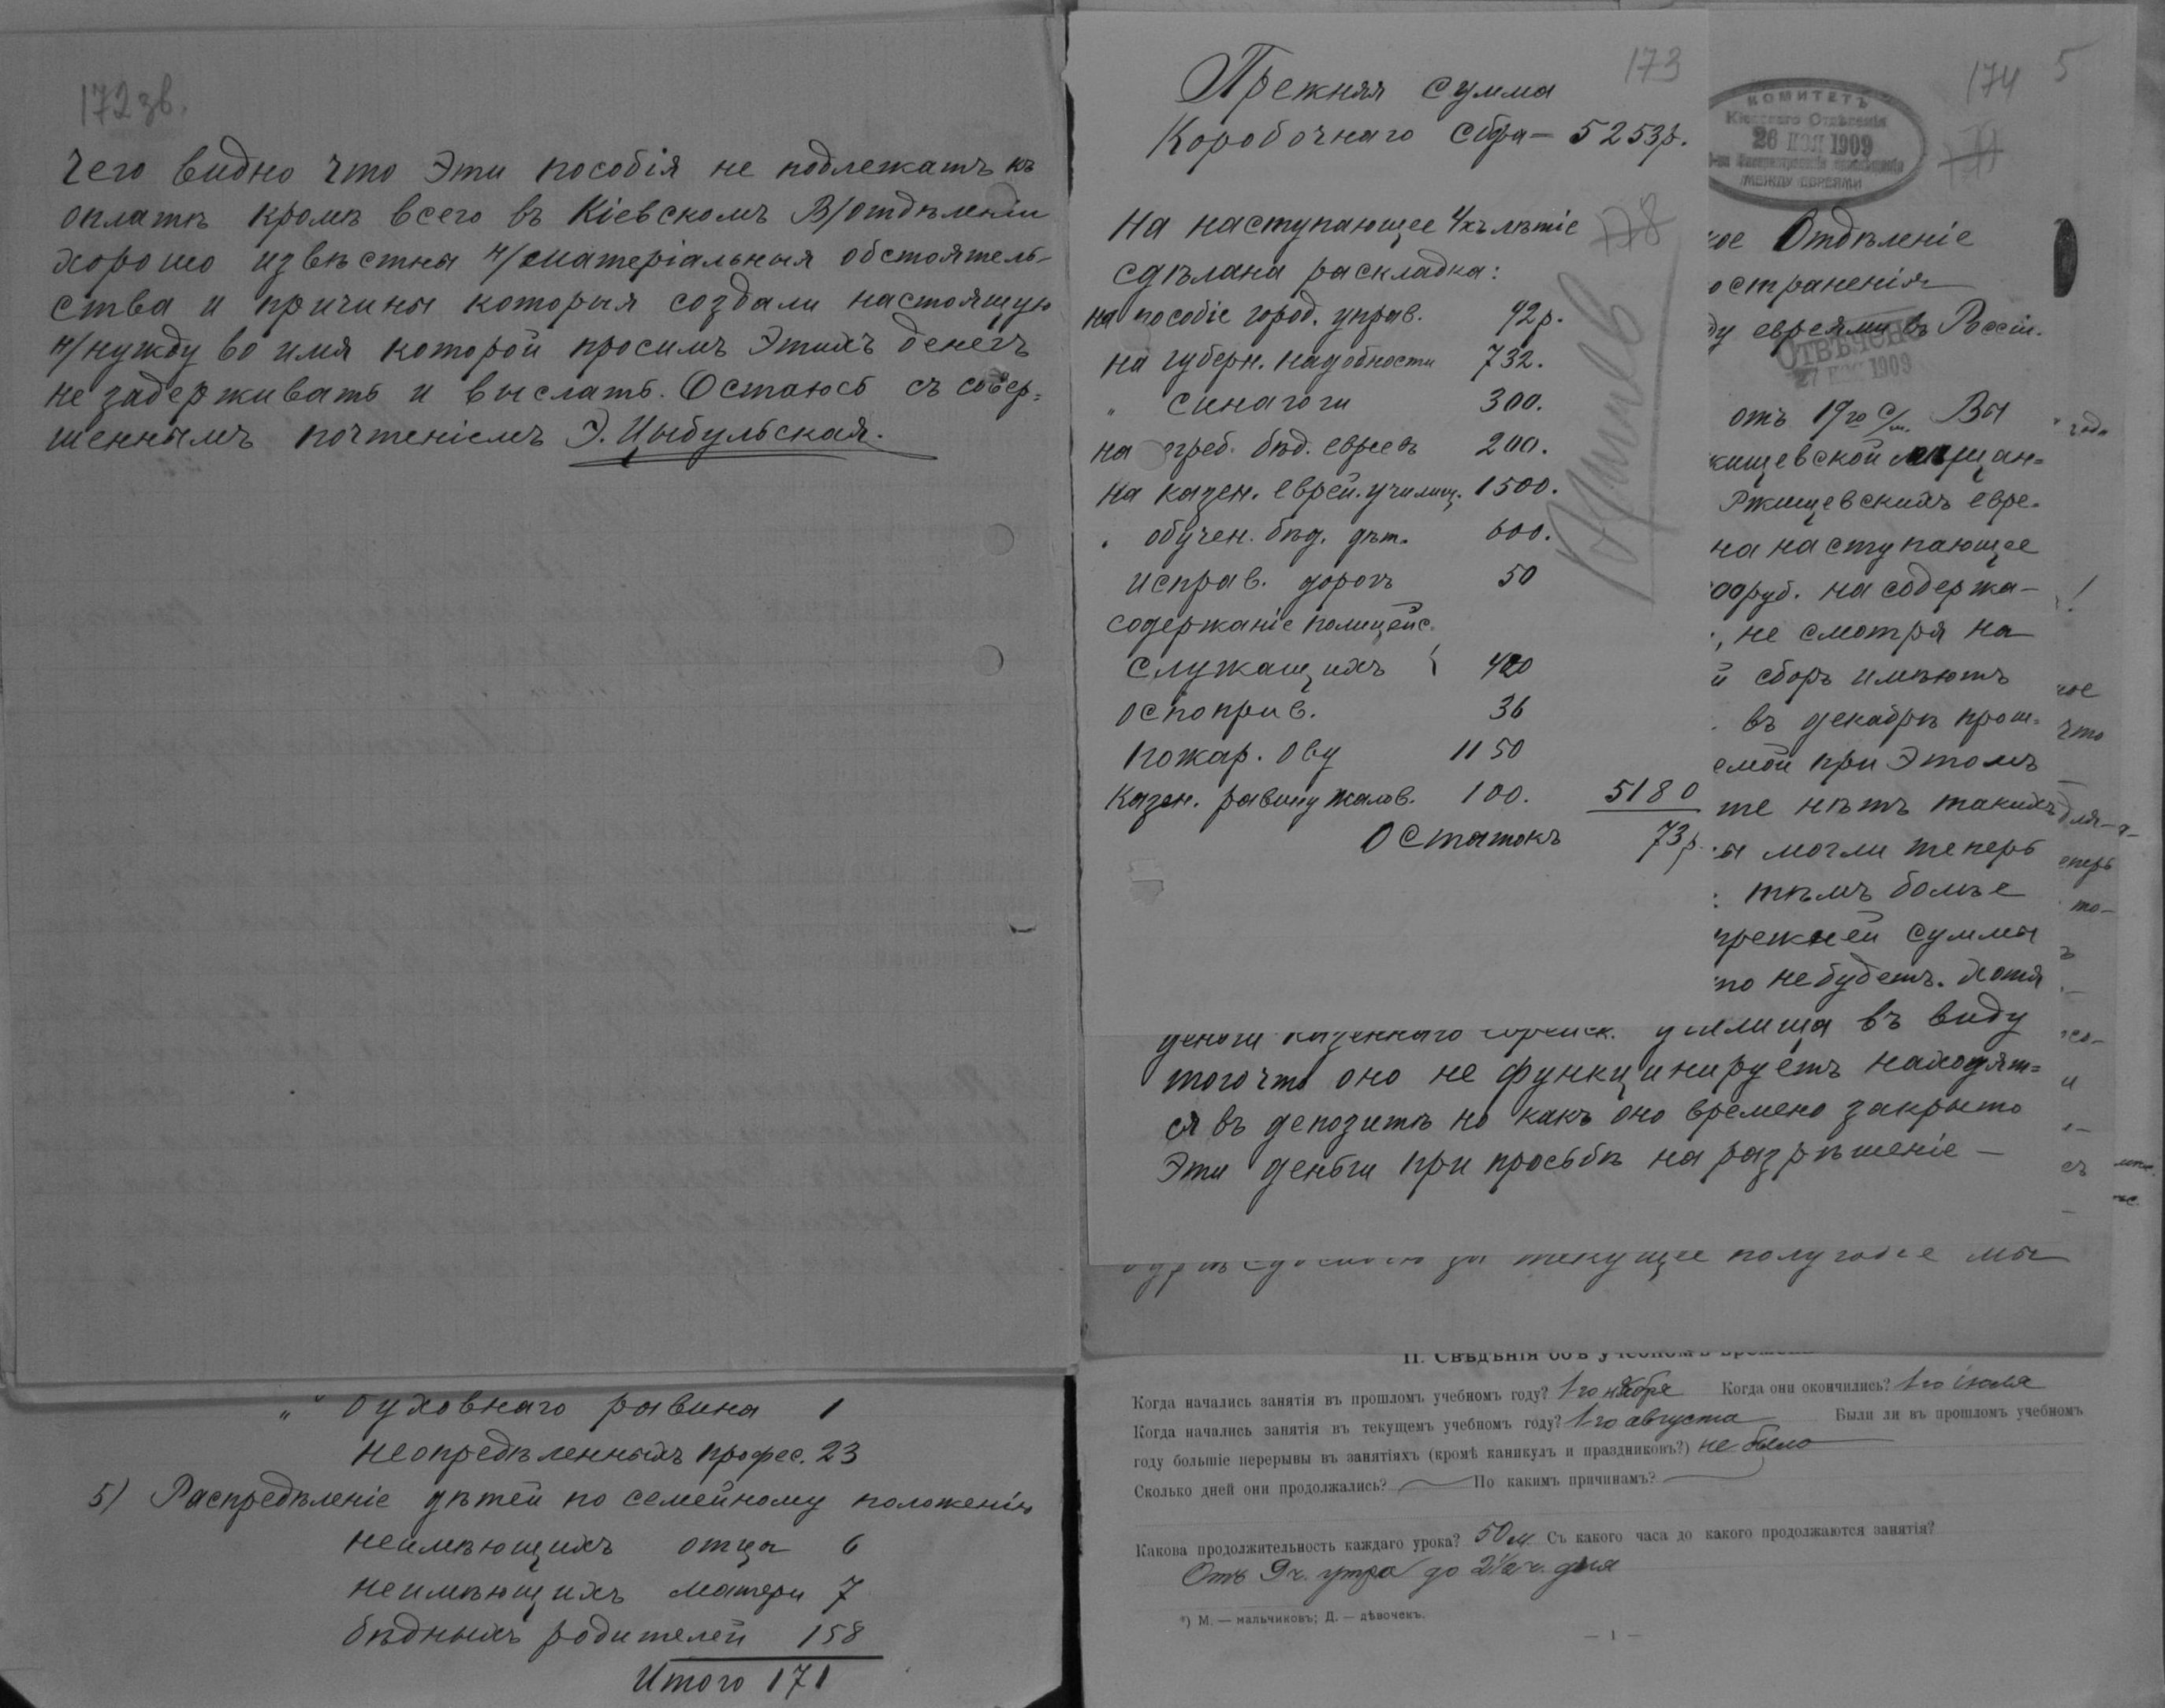 172зв.
чего видно что эти пособія не подлежатъ къ
оплатѣ кромѣ всего въ Кіевскомъ В/отдѣленіи
хорошо извѣстна н/матеріальныя обстоятель-
ства и причины которыя создали настоящую
н/нужду во имя которой просимъ этихъ денегъ
не задерживать и выслать. Остаюсь съ совер=
шеннымъ почтеніемъ Э. Цыбульская.
" духовнаго равина 1
неопредѣленныхъ профес. 23
5) Распредѣленіе дѣтей по семейному положенію
неимѣющихъ отца 6
неимѣющихъ матери 7
бѣдныхъ родителей 158
Итого 171
173
Прежняя сумма
Коробочнаго сбра — 5253р.
78
На наступающее 4хъ лѣтіе
сдѣлана раскладка:
на пособіе город. управ. 92р.
на губерн. надобности 732.
" синагоги 300.
на погреб. бѣд. евреевъ 200.
на казен. еврей. училищ. 1500.
" обучен. бѣд. дѣт. 600.
исправ. дорогъ 50
содержаніе полицейс.
служащихъ 420
оспоприв. 36
пожар. ову 1150
Казен. равину жалов. 100. 5180
Остатокъ 73р.
174
5
КОМИТЕТЪ
Кіевскаго Отдѣленія
26 НОЯ 1909
МЕЖДУ ЕВРЕЯМИ
ое Отдѣленіе
остраненія
ду евреями въ Россіи.
ОТВѢЧЕНО
27 НОЯ 1909
отъ 19го с/м. Вы
кищевской мѣщан=
Ржищевскихъ евре-
на наступающее
00руб. на содержа-
, не смотря на
й сборъ имѣютъ
въ декабрѣ прош=
емой при этомъ
те нѣтъ такихъ
ы могли теперь
: тѣмъ болѣе
прежней суммы
то небудетъ. Хотя
деньги казеннаго еврейск. училища въ виду
того что оно не функцинируетъ находят=
ся въ депозитѣ но какъ оно времено закрыто
Эти деньги при просьбѣ на разрѣшеніе —
за текущее полугодіе мы
года
!
ное
что
для
еперь
то-
и
II. Свѣдѣнія объ учебномъ времени
Когда начались занятія въ прошломъ учебномъ году? 1-го ноября Когда они окончились? 1-го іюля
Когда начались занятія въ текущемъ учебномъ году? 1-го августа Были ли въ прошломъ учебномъ
году большіе перерывы въ занятіяхъ (кромѣ каникулъ и праздниковъ?) не было
Сколько дней они продолжались? — По какимъ причинамъ? —
Какова продолжительность каждаго урока? 50 м. Съ какого часа до какого продолжаются занятія?
Отъ 9 ч. утра до 2½ ч. дня
*) М. — мальчиковъ; Д. — дѣвочекъ.
— 1 —